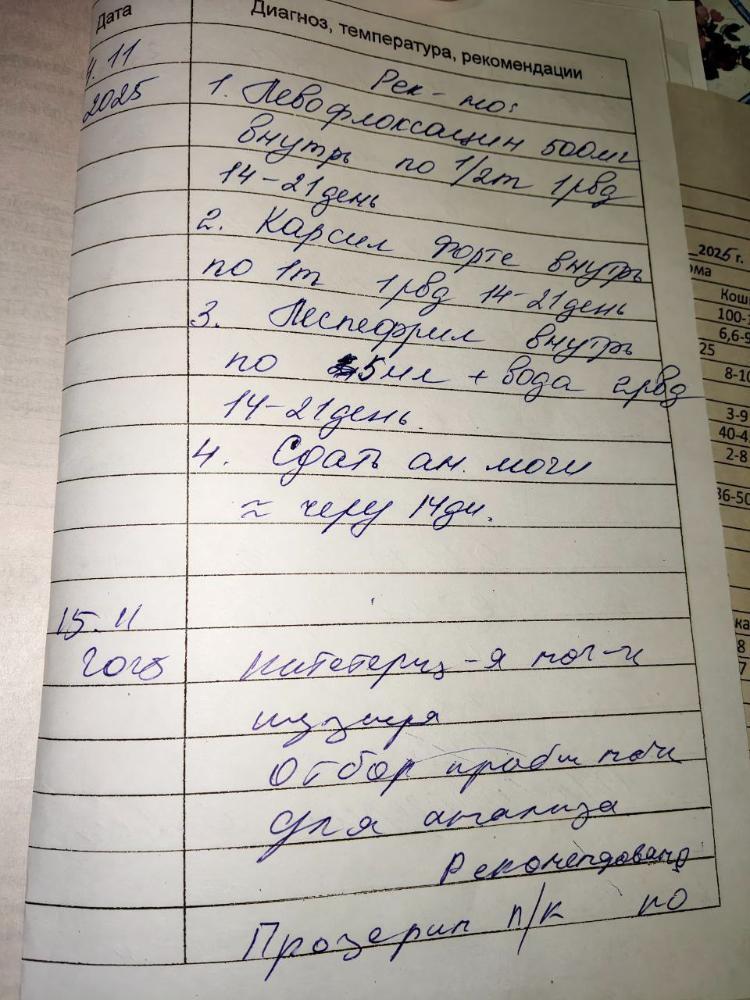 Дата
Диагноз, температура, рекомендации
4.11
2025
Рек-мо:
1. Левофлоксацин 500мг
внутрь по 1/2т 1рвд
14-21день
2. Карсил форте внутрь
по 1т 1рвд 14-21день
3. Леспефрил внутрь
по 5мл + вода 2рвд
14-21день.
4. Сдать ан. мочи
≈ через 14дн.
15.11
2025
катетериз-я моч-и
пузыря
Отбор пробы мочи
для анализа
Рекомендовано
Прозерин п/к по
2025 г.
рма
Кош
100-
6,6-9
25
8-10
3-9
40-4
2-8
36-50
ка
8
7